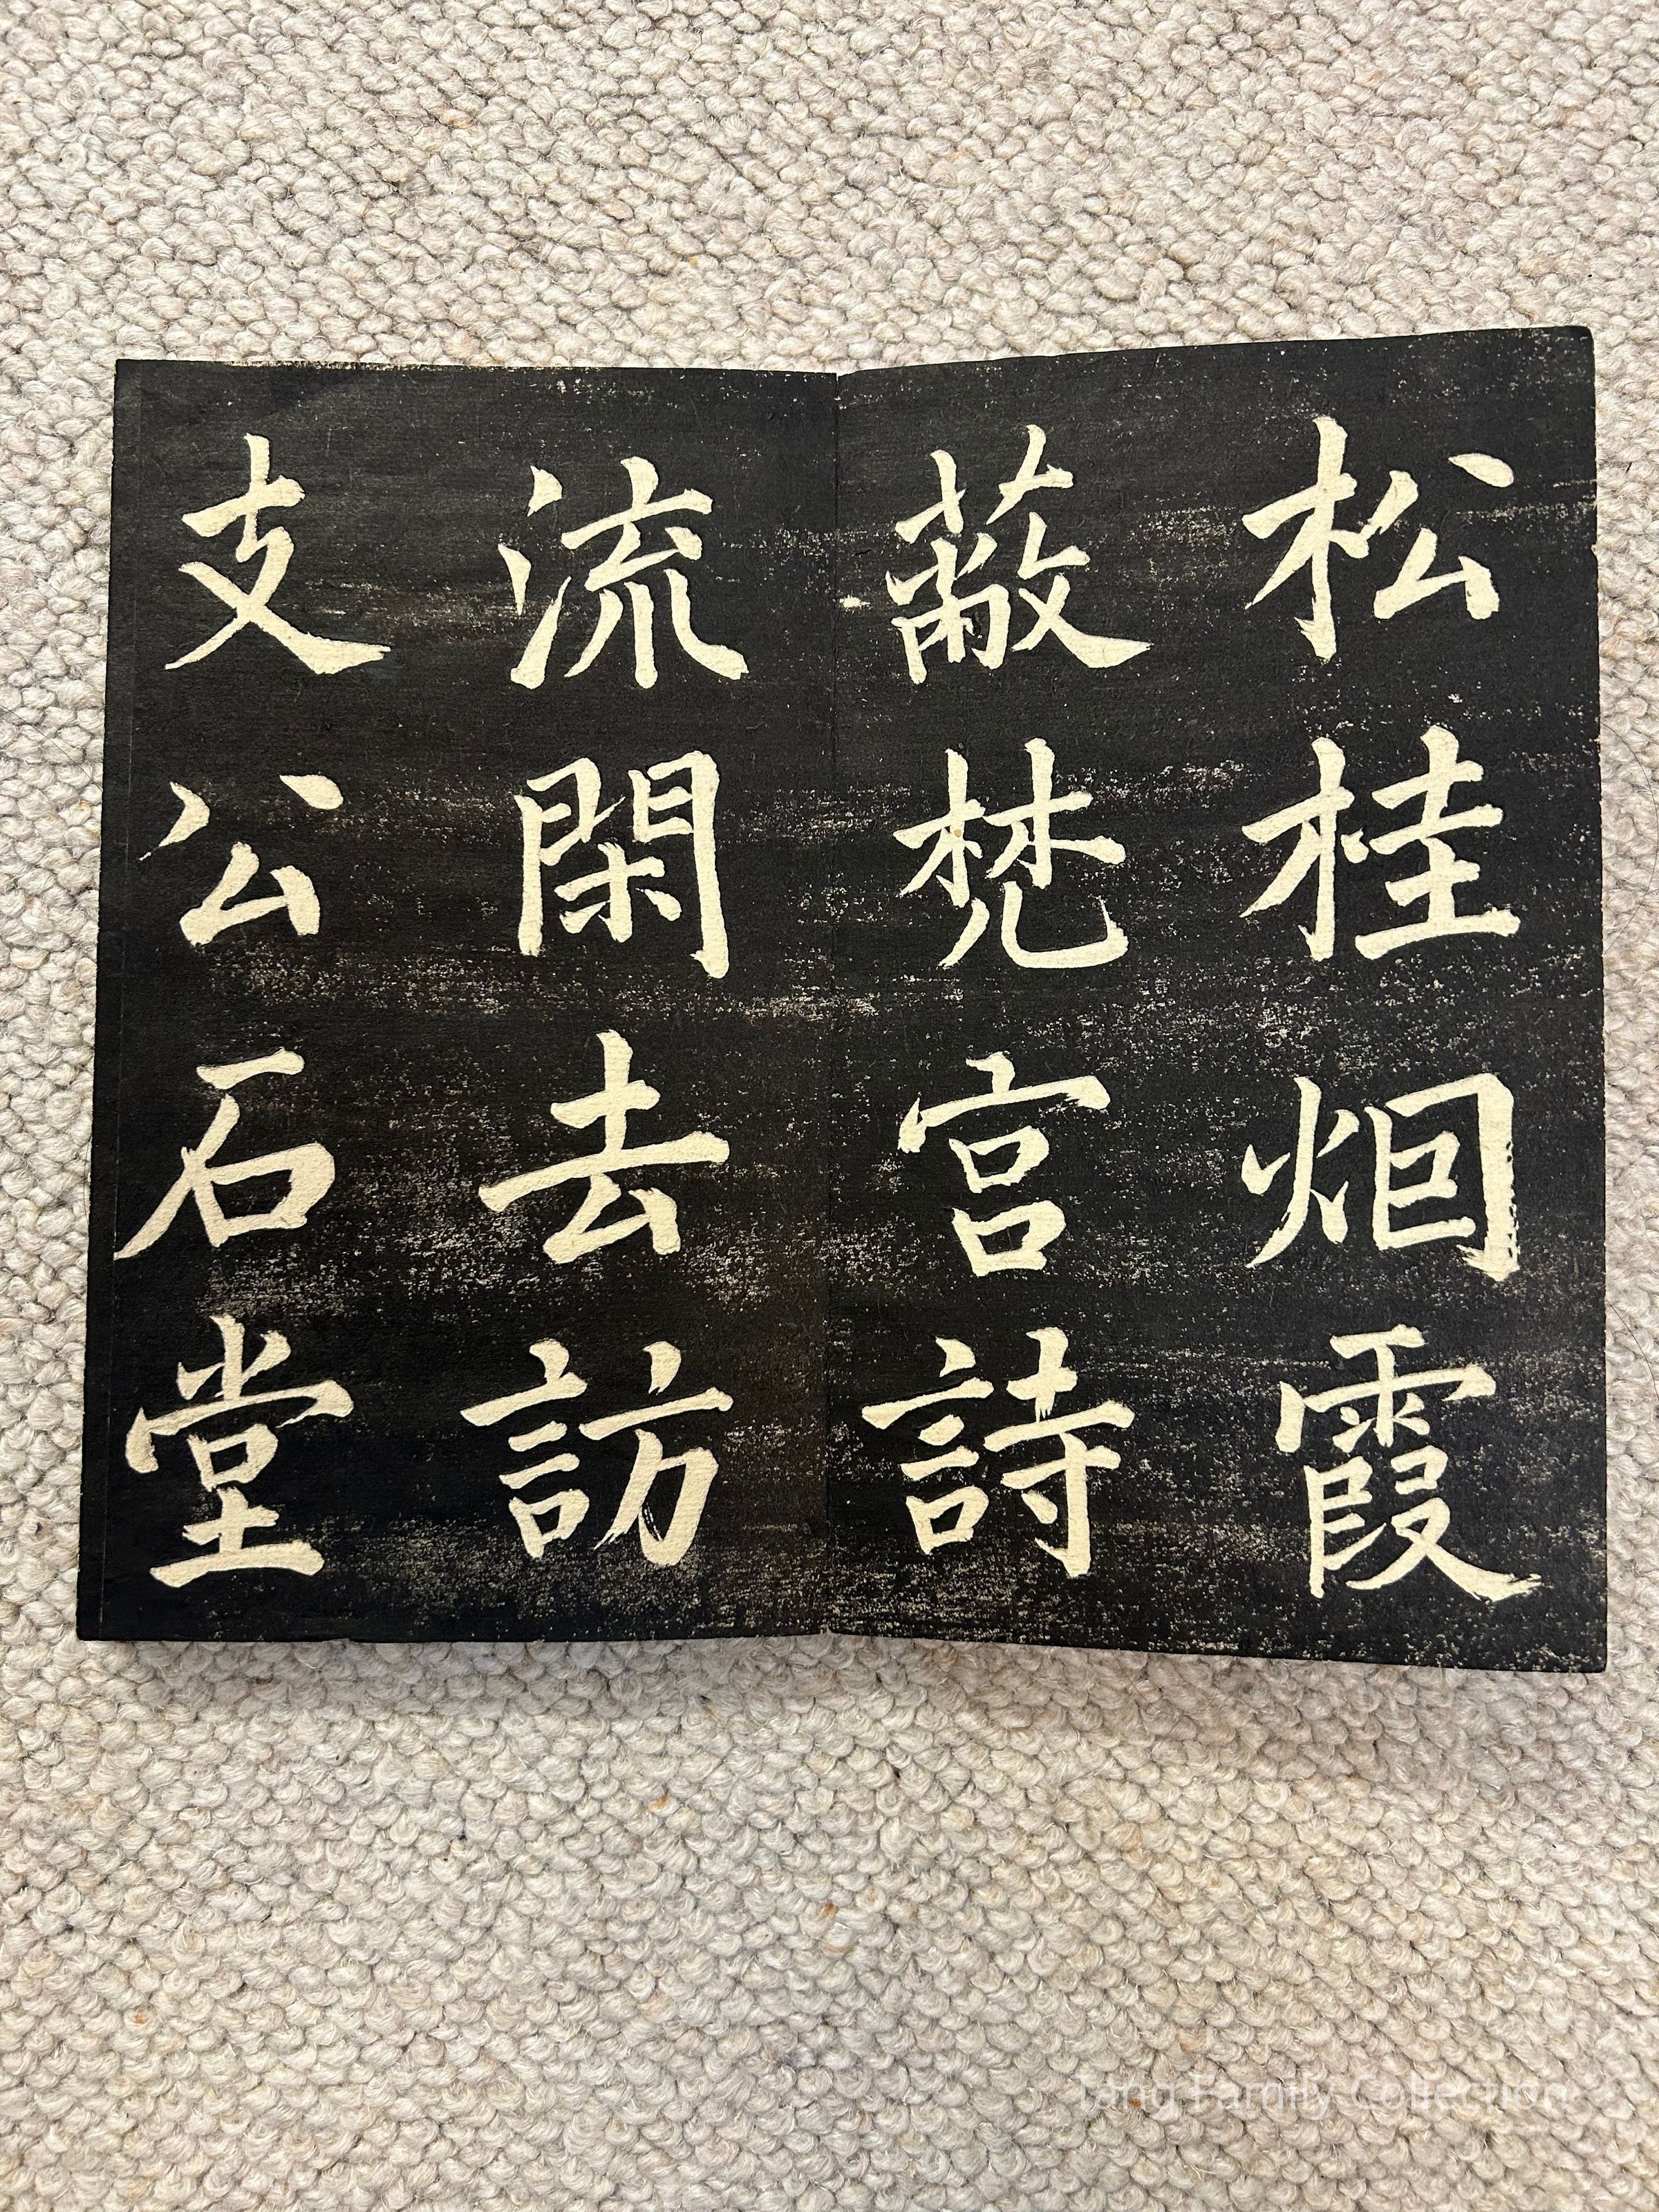 松桂烟霞
蔽梵宮詩
流閑去訪
支公石堂
Tang Family Collection